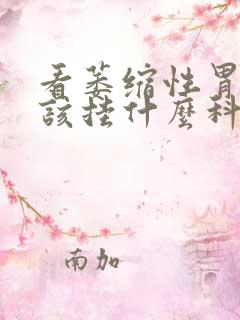 看萎缩性胃
該挂什麼科
南加